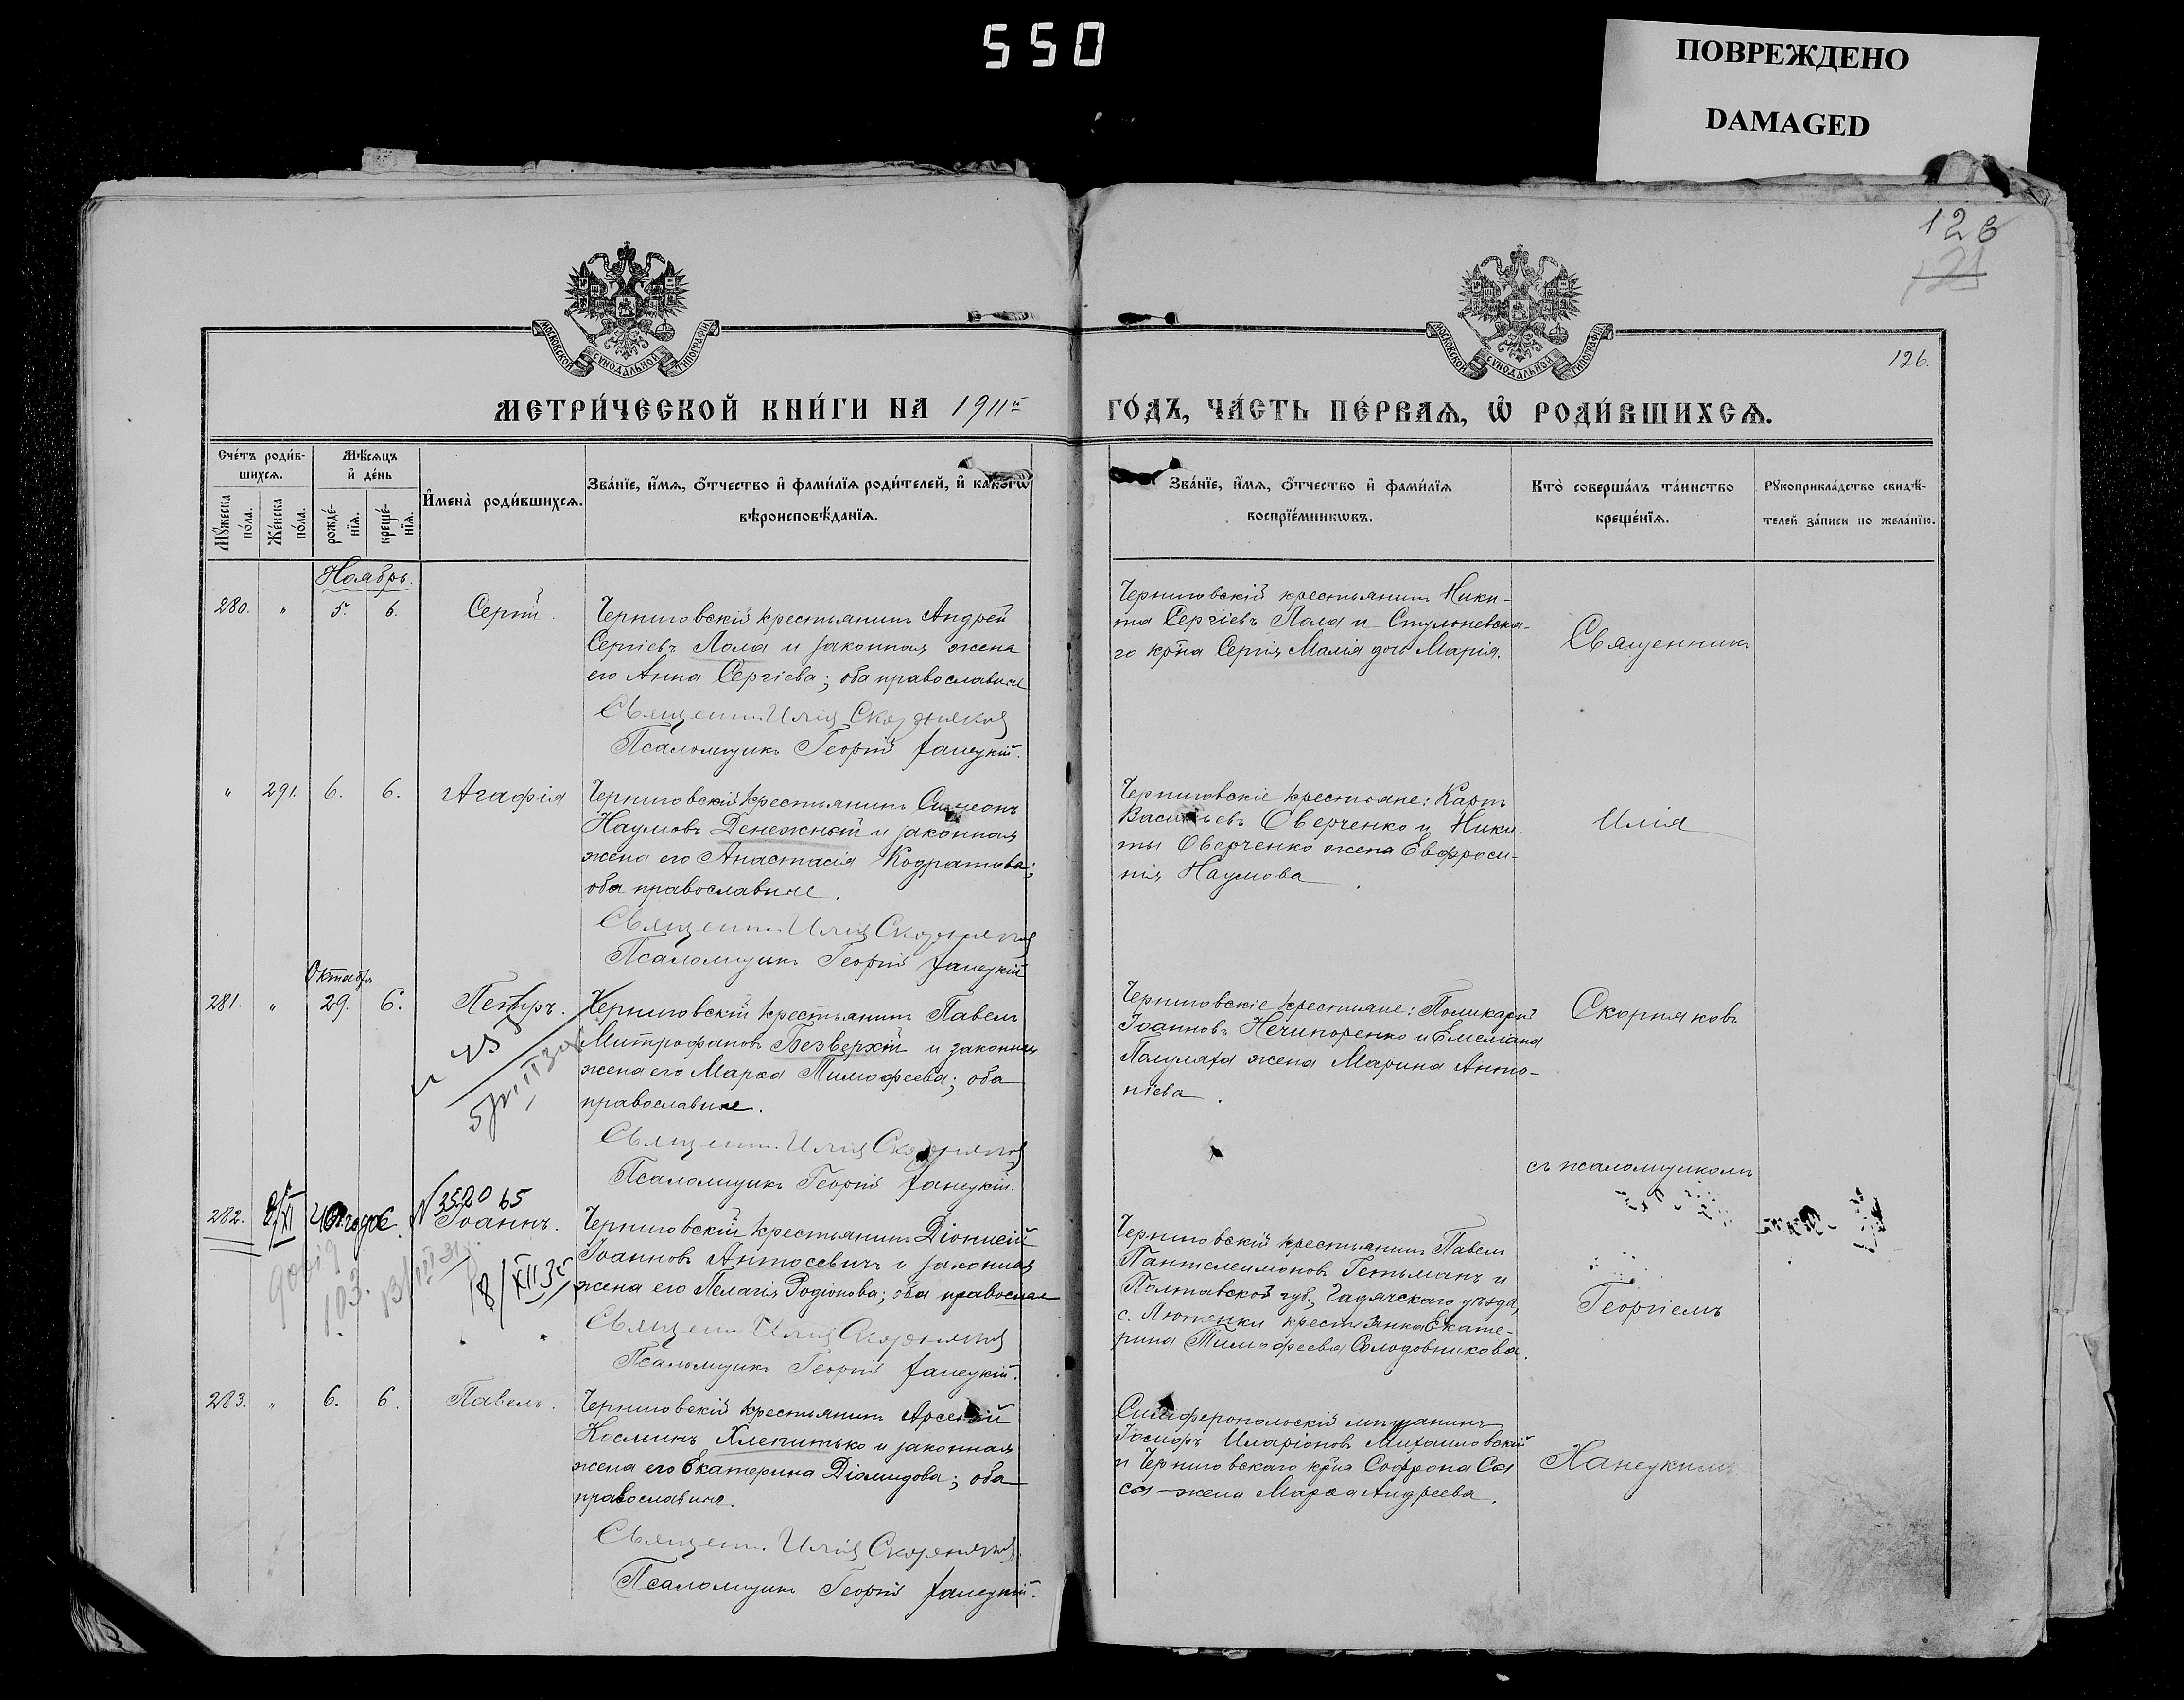 550
ПОВРЕЖДЕНО
DAMAGED
128
126.
МОСКОВСКОЙ СѴНОДАЛЬНОЙ ТИПОГРАФІИ
МОСКОВСКОЙ СѴНОДАЛЬНОЙ ТИПОГРАФІИ
МЕТРИ́ЧЕСКОЙ КНИ́ГИ НА 1911й ГО́ДЪ, ЧА́СТЬ ПЕ́РВАѦ, Ѽ РОДИ́ВШИХСѦ.
Сче́тъ роди́в-
шихсѧ.
Мꙋ́жеска по́ла.
Же́нска по́ла.
Мѣ́сѧцъ
и҆ де́нь
рожде́-
нїѧ.
креще́-
нїѧ.
И҆мена̀ роди́вшихсѧ.
Зва́нїе, и҆́мѧ, ѻ҆́тчество и҆ фами́лїѧ роди́телей, и҆ како́гѡ
вѣроисповѣ́данїѧ.
Зва́нїе, и҆́мѧ, ѻ҆́тчество и҆ фами́лїѧ
воспрїе́мникѡвъ.
Кто̀ соверша́лъ та́инство
креще́нїѧ.
Рꙋкоприкла́дство свидѣ́-
телей за́писи по жела́нїю.
Ноябрь.
280. " 5. 6. Сергій.
Черниговскій крестьянинъ Андрей
Сергіевъ Лола и законная жена
его Анна Сергіева; оба православные
Священ. Илія Скорняковъ
Псаломщикъ Георгій Ханецкій.
Черниговскій крестьянинъ Ники-
та Сергіевъ Лола и
го кр-на Сергія Малія дочь Марія.
Священник
" 291. 6. 6. Агафія
Черниговскій крестьянинъ Симеонъ
Наумовъ Денежный и законная
жена его Анастасія Кодратова;
оба православные.
Священ. Илія Скорняковъ
Псаломщикъ Георгій Ханецкій
Черниговскіе крестьяне: Карпъ
Васильевъ Оверченко и Ники-
ты Оверченко жена Евфроси-
нія Наумова.
Илія
Октября
281. " 29. 6. Петръ.
Черниговскій крестьянинъ Павелъ
Митрофановъ Безверхій и законная
жена его Марѳа Тимофеева; оба
православные.
Священ. Илія Скорняковъ
Псаломщикъ Георгій Ханецкій.
Черниговскіе крестьяне: Поликарпъ
Іоанновъ Нечипоренко и Емеліана
жена Марина Анто-
ніева.
Скорняковъ
съ псаломщикомъ
N 3520 65
282. 6. Іоаннъ.
103.
18/XII 35
Черниговскій крестьянинъ Діонисій
Іоанновъ Антосевичъ и законная
жена его Пелагія Родіонова; оба православ
Священ. Илія Скорняковъ
Псаломщикъ Георгій Ханецкій.
Черниговскій крестьянинъ Павелъ
Пантелеимоновъ Гетьманъ и
Полтавской губ., Гадячскаго уѣзда,
с. Лютенки крестьянка Екате-
рина Тимофеева Солодовникова.
Георгіемъ
283. " 6. 6. Павелъ.
Черниговскій крестьянинъ Арсеній
Косминъ Хлепитько и законная
жена его Екатерина Діомидова; оба
православные.
Священ. Илія Скорняковъ
Псаломщикъ Георгій Ханецкій.
Симферопольскій мѣщанинъ
Іосифъ Иларіоновъ Михаиловскій
и Черниговскаго кр-на Софрона
жена Марѳа Андреева.
Ханецкимъ